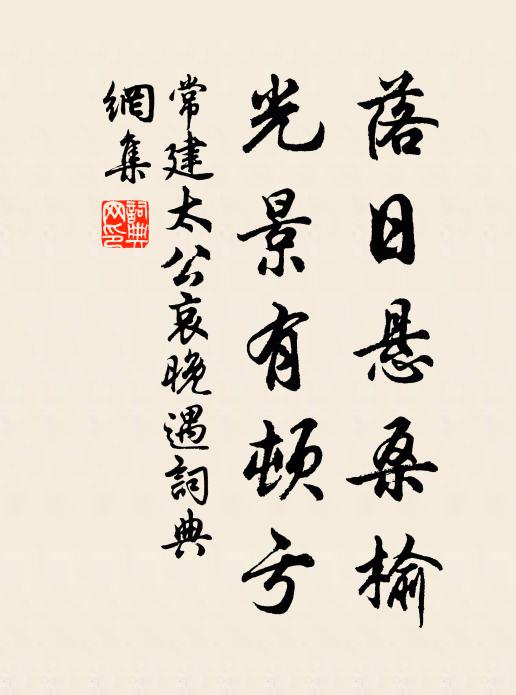 落日悬桑榆
光景有顿亏
常建太公哀晚遇詞典
網集
詞典網印